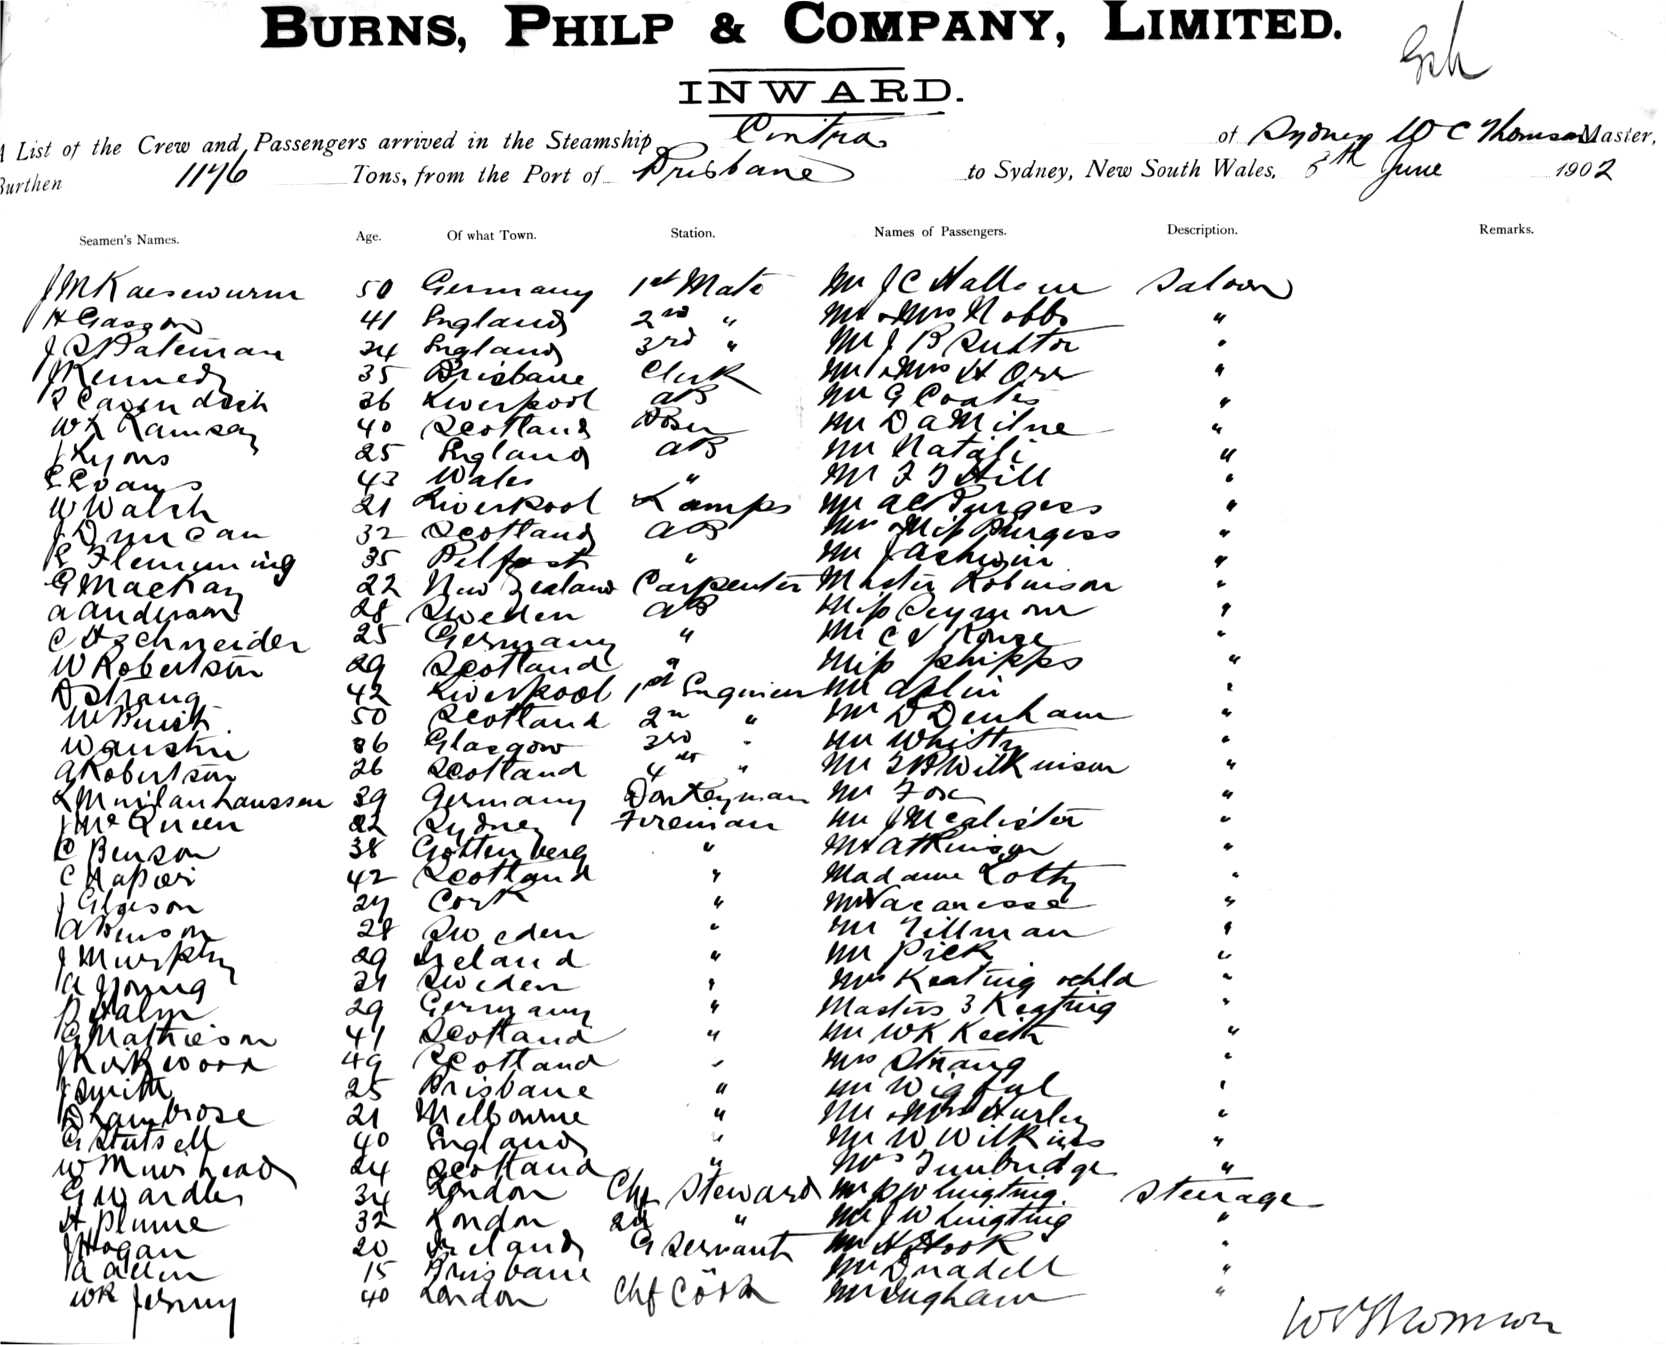 BURNS, PHILP & COMPANY, LIMITED.
INWARD.
A List of the Crew and Passengers arrived in the Steamship Contra of Sydney W C Thomson Master,
Burthen 1146 Tons, from the Port of Brisbane to Sydney, New South Wales, 8th June 1902
Seamen's Names. Age. Of what Town. Station. Names of Passengers. Description. Remarks.
J M Kaesewurm 50 Germany 1st Mate Mr J C Hallam Saloon
H Gasson 41 England 2nd " Mr & Mrs Nobbs "
J S Bateman 24 England 3rd " Mr J B Suttor "
J Kennedy 35 Brisbane Clerk Mr & Mrs H Orr "
R Cavendish 26 Liverpool AB Mr G Coates "
W L Ramsay 40 Scotland Bosn Mr D A Milne "
J Lyons 25 England AB Mr Natali "
E Evans 43 Wales " Mr F J Hill "
W Walsh 21 Liverpool Lamps Mr Burgess "
J Duncan 32 Scotland AB Mrs & Miss Burgess "
R Flemming 35 Belfast " Mr J Ashwin "
G Mackay 22 New Zealand Carpenter Master Robinson "
A Anderson 28 Sweden AB Miss Seymour "
C H Schneider 25 Germany " Mr "
W Robertson 29 Scotland " Miss Phipps "
D Strang 42 Liverpool 1st Engineer Mr Aplin "
W Buist 50 Scotland 2nd " Mr D Denham "
W Austin 36 Glasgow 3rd " Mr Whitty "
A Robertson 26 Scotland 4th " Mr Wilkinson "
39 Germany Donkeyman Mr Fox "
J McQueen 22 Sydney Fireman Mr J McAlister "
C Benson 38 Gottenberg " Mr Atkinson "
C Napier 42 Scotland " Madame Lotty "
J Gleeson 24 Cork " Mr "
A Benson 28 Sweden " Mr Tillman "
J Murphy 29 Ireland " Mr Pick "
A Young 21 Sweden " Mrs Keating & chld "
Halm 29 Germany " Masters 3 Keating "
G Mathieson 41 Scotland " Mr W K Keith "
J Kirkwood 49 Scotland " Mrs Strang "
J Smith 25 Brisbane " Mr Wigful "
D Lambrose 21 Melbourne " Mr & Mrs Hurley "
G Stutsell 40 England " Mr W Wilkins "
W Muirhead 24 Scotland " Mrs Tunbridge "
G Wardles 34 London Chf Steward Mr Steerage
H Plume 32 London 2d " Mr J W "
J Hogan 20 Ireland G Servant Mr H Hook "
A Allen 15 Brisbane Mr "
W R Jenny 40 London Chf Cook Mr Ingham "
W C Thomson